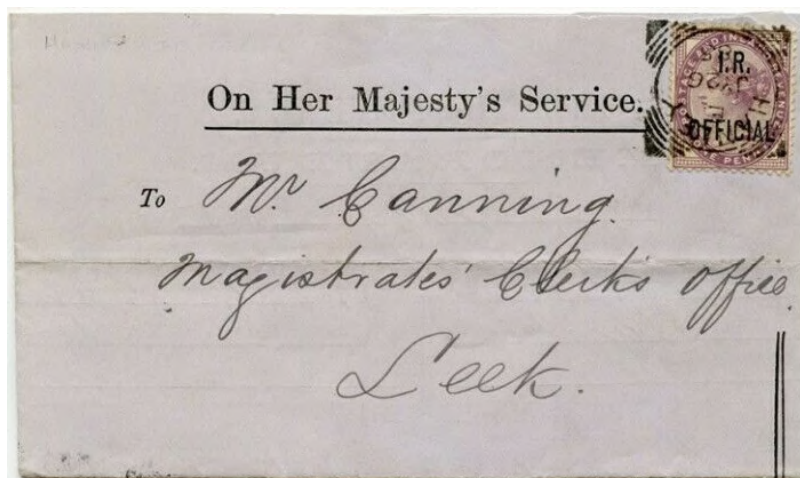 On Her Majesty's Service.
I.R.
OFFICIAL
To Mr Canning.
Magistrates' Clerk's Office
Leek.